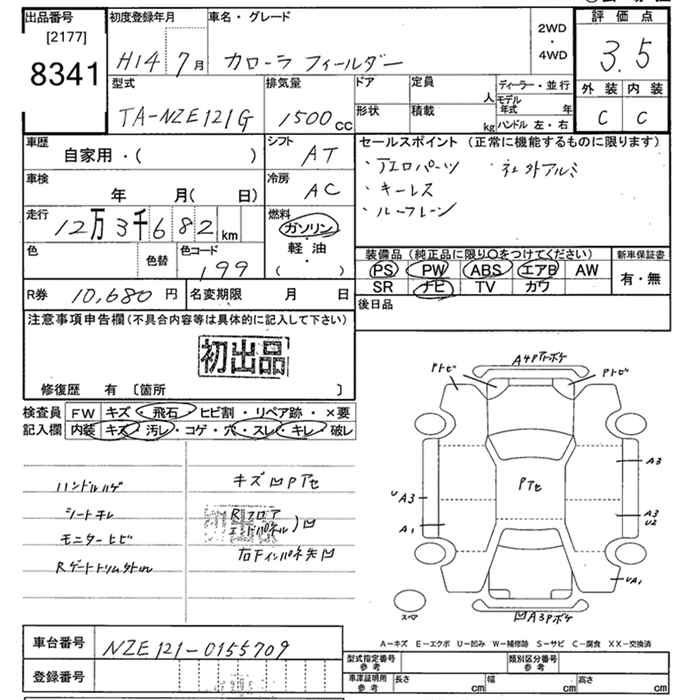 出品番号
[2177]
8341
初度登録年月
H14 7月
車名・グレード
カローラ フィールダー
2WD
・
4WD
評価点
3.5
外装 内装
C C
型式
TA-NZE121G
排気量
1500cc
ドア
形状
定員 人
積載 kg
ディーラー・並行
モデル年式 年
ハンドル 左・右
車歴
自家用・( )
シフト
AT
車検
年 月( 日)
冷房
AC
走行
12万3千682km
燃料
ガソリン
軽・油
・
( )
色
色替
色コード
199
R券 10,680円
名変期限 月 日
セールスポイント (正常に機能するものに限ります)
・アエロパーツ ・社外アルミ
・キーレス
・ルーフレーン
装備品 (純正品に限り○をつけてください)
PS PW ABS エアB AW
SR ナビ TV カワ
新車保証書
有・無
後日品
注意事項申告欄(不具合内容等は具体的に記入して下さい)
初出品
修復歴 有 〔箇所 〕
検査員記入欄
FW キズ・飛石・ヒビ割・リペア跡・×要
内装 キズ・汚レ・コゲ・穴・スレ・キレ・破レ
ハンドルハゲ
シートキレ
モニターヒビ
キズ凹Pアセ
Rフロア
エンドパネル)凹
AヤPアトボケ
Pトビ
Pトビ
Pアセ
A3
UA3
A3
U2
A1
UA1
凹A3Pボケ
スペア
A-キズ E-エクボ U-凹み W-補修跡 S-サビ C-腐食 XX-交換済
車台番号
NZE121-0155709
登録番号
型式指定番号 参考
類別区分番号 参考
車庫証明用 参考
長さ cm
幅 cm
高さ cm